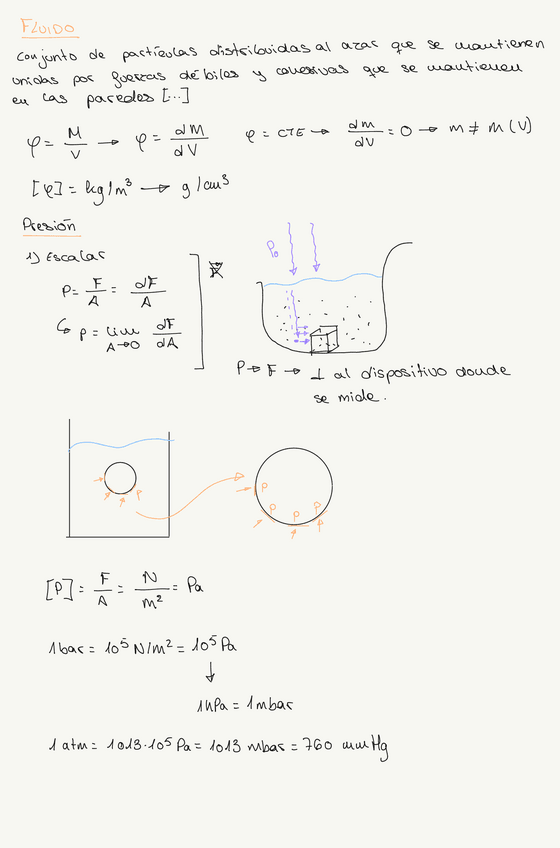 FLUIDO
Conjunto de partículas distribuidas al azar que se mantienen
unidas por fuerzas débiles y cohesivas que se mantienen
en las paredes [...]
φ = M/V → φ = dM/dV φ = CTE → dm/dV = 0 → m ≠ m(V)
[φ] = kg/m³ → g/cm³
Presión
1) Escalar
P = F/A = dF/A
↳ p = lim A→0 dF/dA
P₀
P → F → ⊥ al dispositivo donde
se mide.
P
P
P
P
P
[P] = F/A = N/m² = Pa
1 bar = 10⁵ N/m² = 10⁵ Pa
↓
1 hPa = 1 mbar
1 atm = 1013·10⁵ Pa = 1013 mbar = 760 mmHg